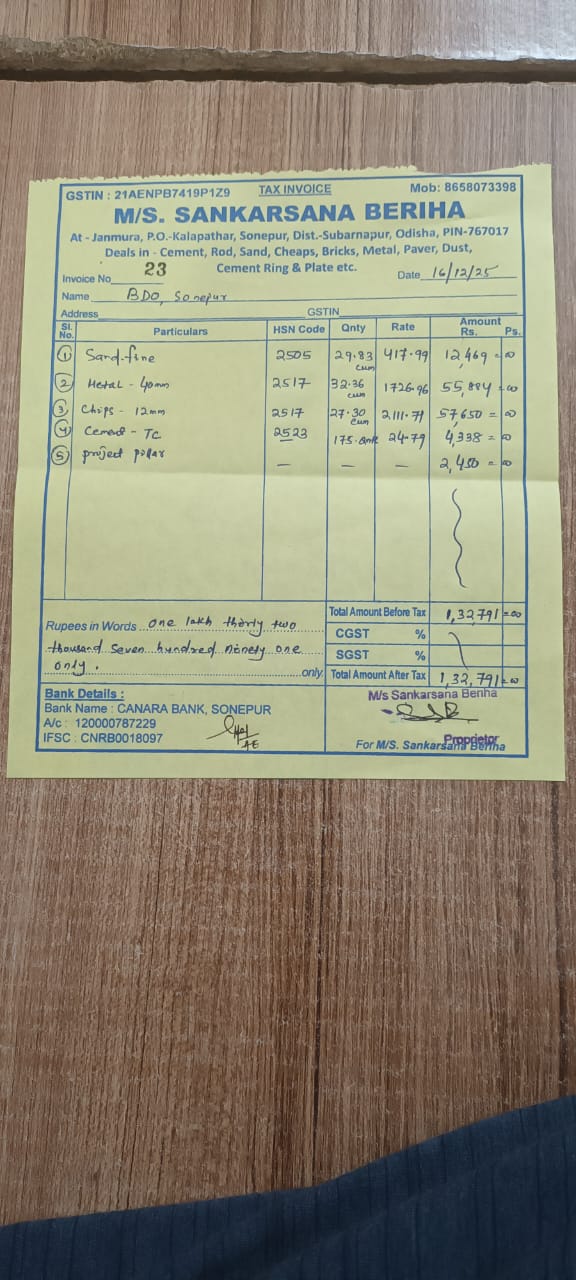 GSTIN : 21AENPB7419P1Z9 TAX INVOICE Mob: 8658073398
M/S. SANKARSANA BERIHA
At - Janmura, P.O.-Kalapathar, Sonepur, Dist.-Subarnapur, Odisha, PIN-767017
Deals in - Cement, Rod, Sand, Cheaps, Bricks, Metal, Paver, Dust,
Cement Ring & Plate etc.
Invoice No 23 Date 16/12/25
Name BDO, Sonepur
Address GSTIN
Sl. No. Particulars HSN Code Qnty Rate Amount Rs. Ps.
1 Sand-fine 2505 29.83 cum 417.99 12,469 = 00
2 Metal - 40mm 2517 32.36 cum 1726.96 55,884 = 00
3 Chips - 12mm 2517 27.30 cum 2111.71 57,650 = 00
4 Cement - TC 2523 175. 24.79 4,338 = 00
5 project pillar — — — 2,450 = 00
Total Amount Before Tax 1,32,791 = 00
Rupees in Words one lakh thirty two
thousand seven hundred ninety one
only. only
CGST %
SGST %
Total Amount After Tax 1,32,791 = 00
Bank Details :
Bank Name : CANARA BANK, SONEPUR
A/c : 120000787229
IFSC : CNRB0018097
AE
M/s Sankarsana Beriha
Proprietor
For M/S. Sankarsana Beriha